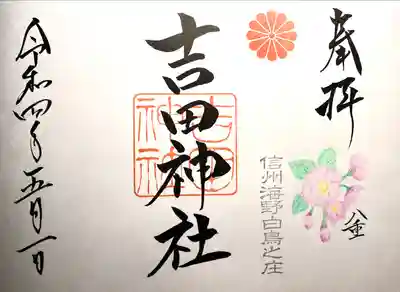 奉拝
信州海野白鳥之庄
吉田神社
吉田
神社
令和四年五月一日